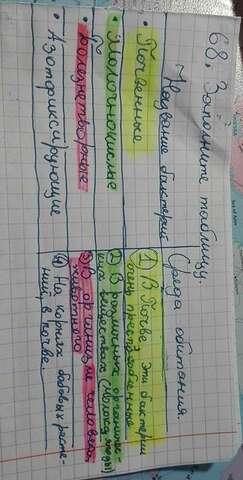 68. Заполните таблицу.
Название бактерий
Среда обитания
• Почвенные
1) В Почве эти бактерии
очень преспособленные
• Молочнокислые
2) В различных органичес-
ких веществах (Молоко, плоды)
• Болезнетворные
3) В организме человека,
животного
• Азотфиксирующие
4) На корнях бобовых расте-
ний, в почве